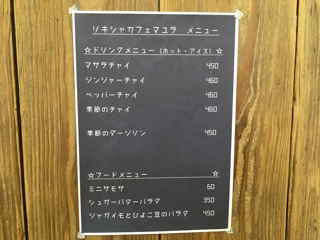 リキシャカフェマユラ メニュー
☆ドリンクメニュー(ホット・アイス)☆
マサラチャイ 450
ジンジャーチャイ 460
ペッパーチャイ 460
季節のチャイ 460
季節のダージリン 450
☆フードメニュー ☆
ミニサモサ 60
シュガーバターパラタ 350
ジャガイモとひよこ豆のパラタ 450